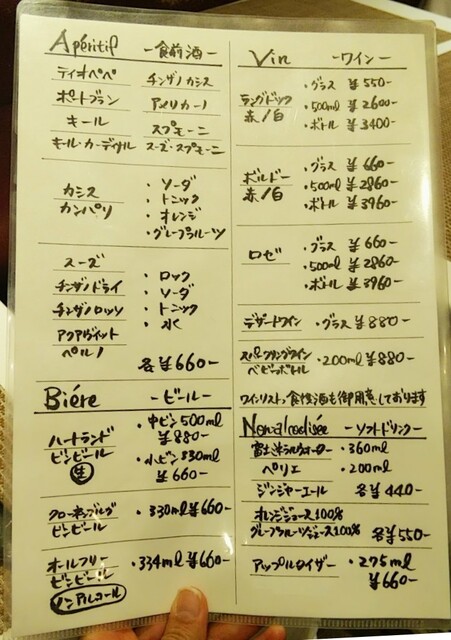 Apéritif -食前酒-
ティオペペ チンザノカシス
ポートブラン アメリカーノ
キール スプモーニ
キール・カーディナル スーズ・スプモーニ
カシス
カンパリ
・ソーダ
・トニック
・オレンジ
・グレープフルーツ
スーズ
チンザノドライ
チンザノロッソ
アクアヴィット
ペルノ
・ロック
・ソーダ
・トニック
・水
各¥660-
Biére -ビール-
ハートランド
ビンビール
生
・中ビン500ml
¥880-
・小ビン330ml
¥660-
クローネンブルグ
ビンビール
・330ml ¥660-
オールフリー
ビンビール
ノンアルコール
・334ml ¥660-
Vin -ワイン-
ラングドック
赤/白
・グラス ¥550-
・500ml ¥2600-
・ボトル ¥3400-
ボルドー
赤/白
・グラス ¥660-
・500ml ¥2860-
・ボトル ¥3960-
ロゼ
・グラス ¥660-
・500ml ¥2860-
・ボトル ¥3960-
デザートワイン ・グラス ¥880-
スパークリングワイン
ベビーボトル
・200ml ¥880-
ワインリスト、食後酒も御用意しております
Nonalcoolisée -ソフトドリンク-
富士ミネラルウォーター ・360ml
ペリエ ・200ml
ジンジャーエール 各¥440-
オレンジジュース100%
グレープフルーツジュース100% 各¥550-
アップルタイザー ・275ml
¥660-